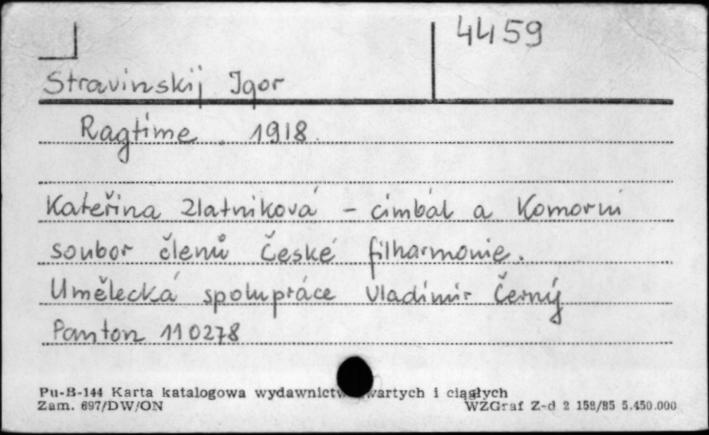 4459
Stravinskij Igor
Ragtime . 1918.
Kateřina Zlatníková - cimbál a Komorní
soubor členů České filharmonie.
Umělecká spolupráce Vladimír Černý
Panton 110278
Pu-B-144 Karta katalogowa wydawnictw zwartych i ciągłych
Zam. 697/DW/ON WZGraf Z-d 2 158/85 5.450.000